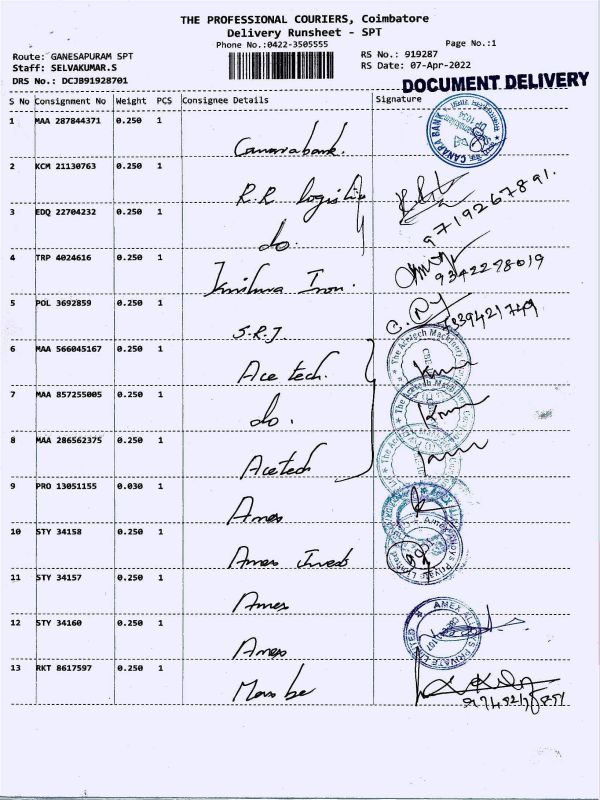 THE PROFESSIONAL COURIERS, Coimbatore
Delivery Runsheet - SPT
Phone No.:0422-3505555
Page No.:1
Route: GANESAPURAM SPT
RS No.: 919287
Staff: SELVAKUMAR.S
RS Date: 07-Apr-2022
DRS No.: DCJB91928701
DOCUMENT DELIVERY
S No Consignment No Weight PCS Consignee Details Signature
1 MAA 287844371 0.250 1
Canarabank.
CANARA BANK
2 KCM 21130763 0.250 1
R.R. logistic
9719267891.
3 EDQ 22704232 0.250 1
do.
4 TRP 4024616 0.250 1
Iron.
9342278019
5 POL 3692859 0.250 1
S.R.J.
6 MAA 566045167 0.250 1
Ace tech.
The Acetech Machinery
7 MAA 857255005 0.250 1
do.
The Acetech Machinery
8 MAA 286562375 0.250 1
Acetech
9 PRO 13051155 0.030 1
Amex
10 STY 34158 0.250 1
Amex
11 STY 34157 0.250 1
Amex
12 STY 34160 0.250 1
Amex
AMEX ALLOYS PRIVATE LIMITED
13 RKT 8617597 0.250 1